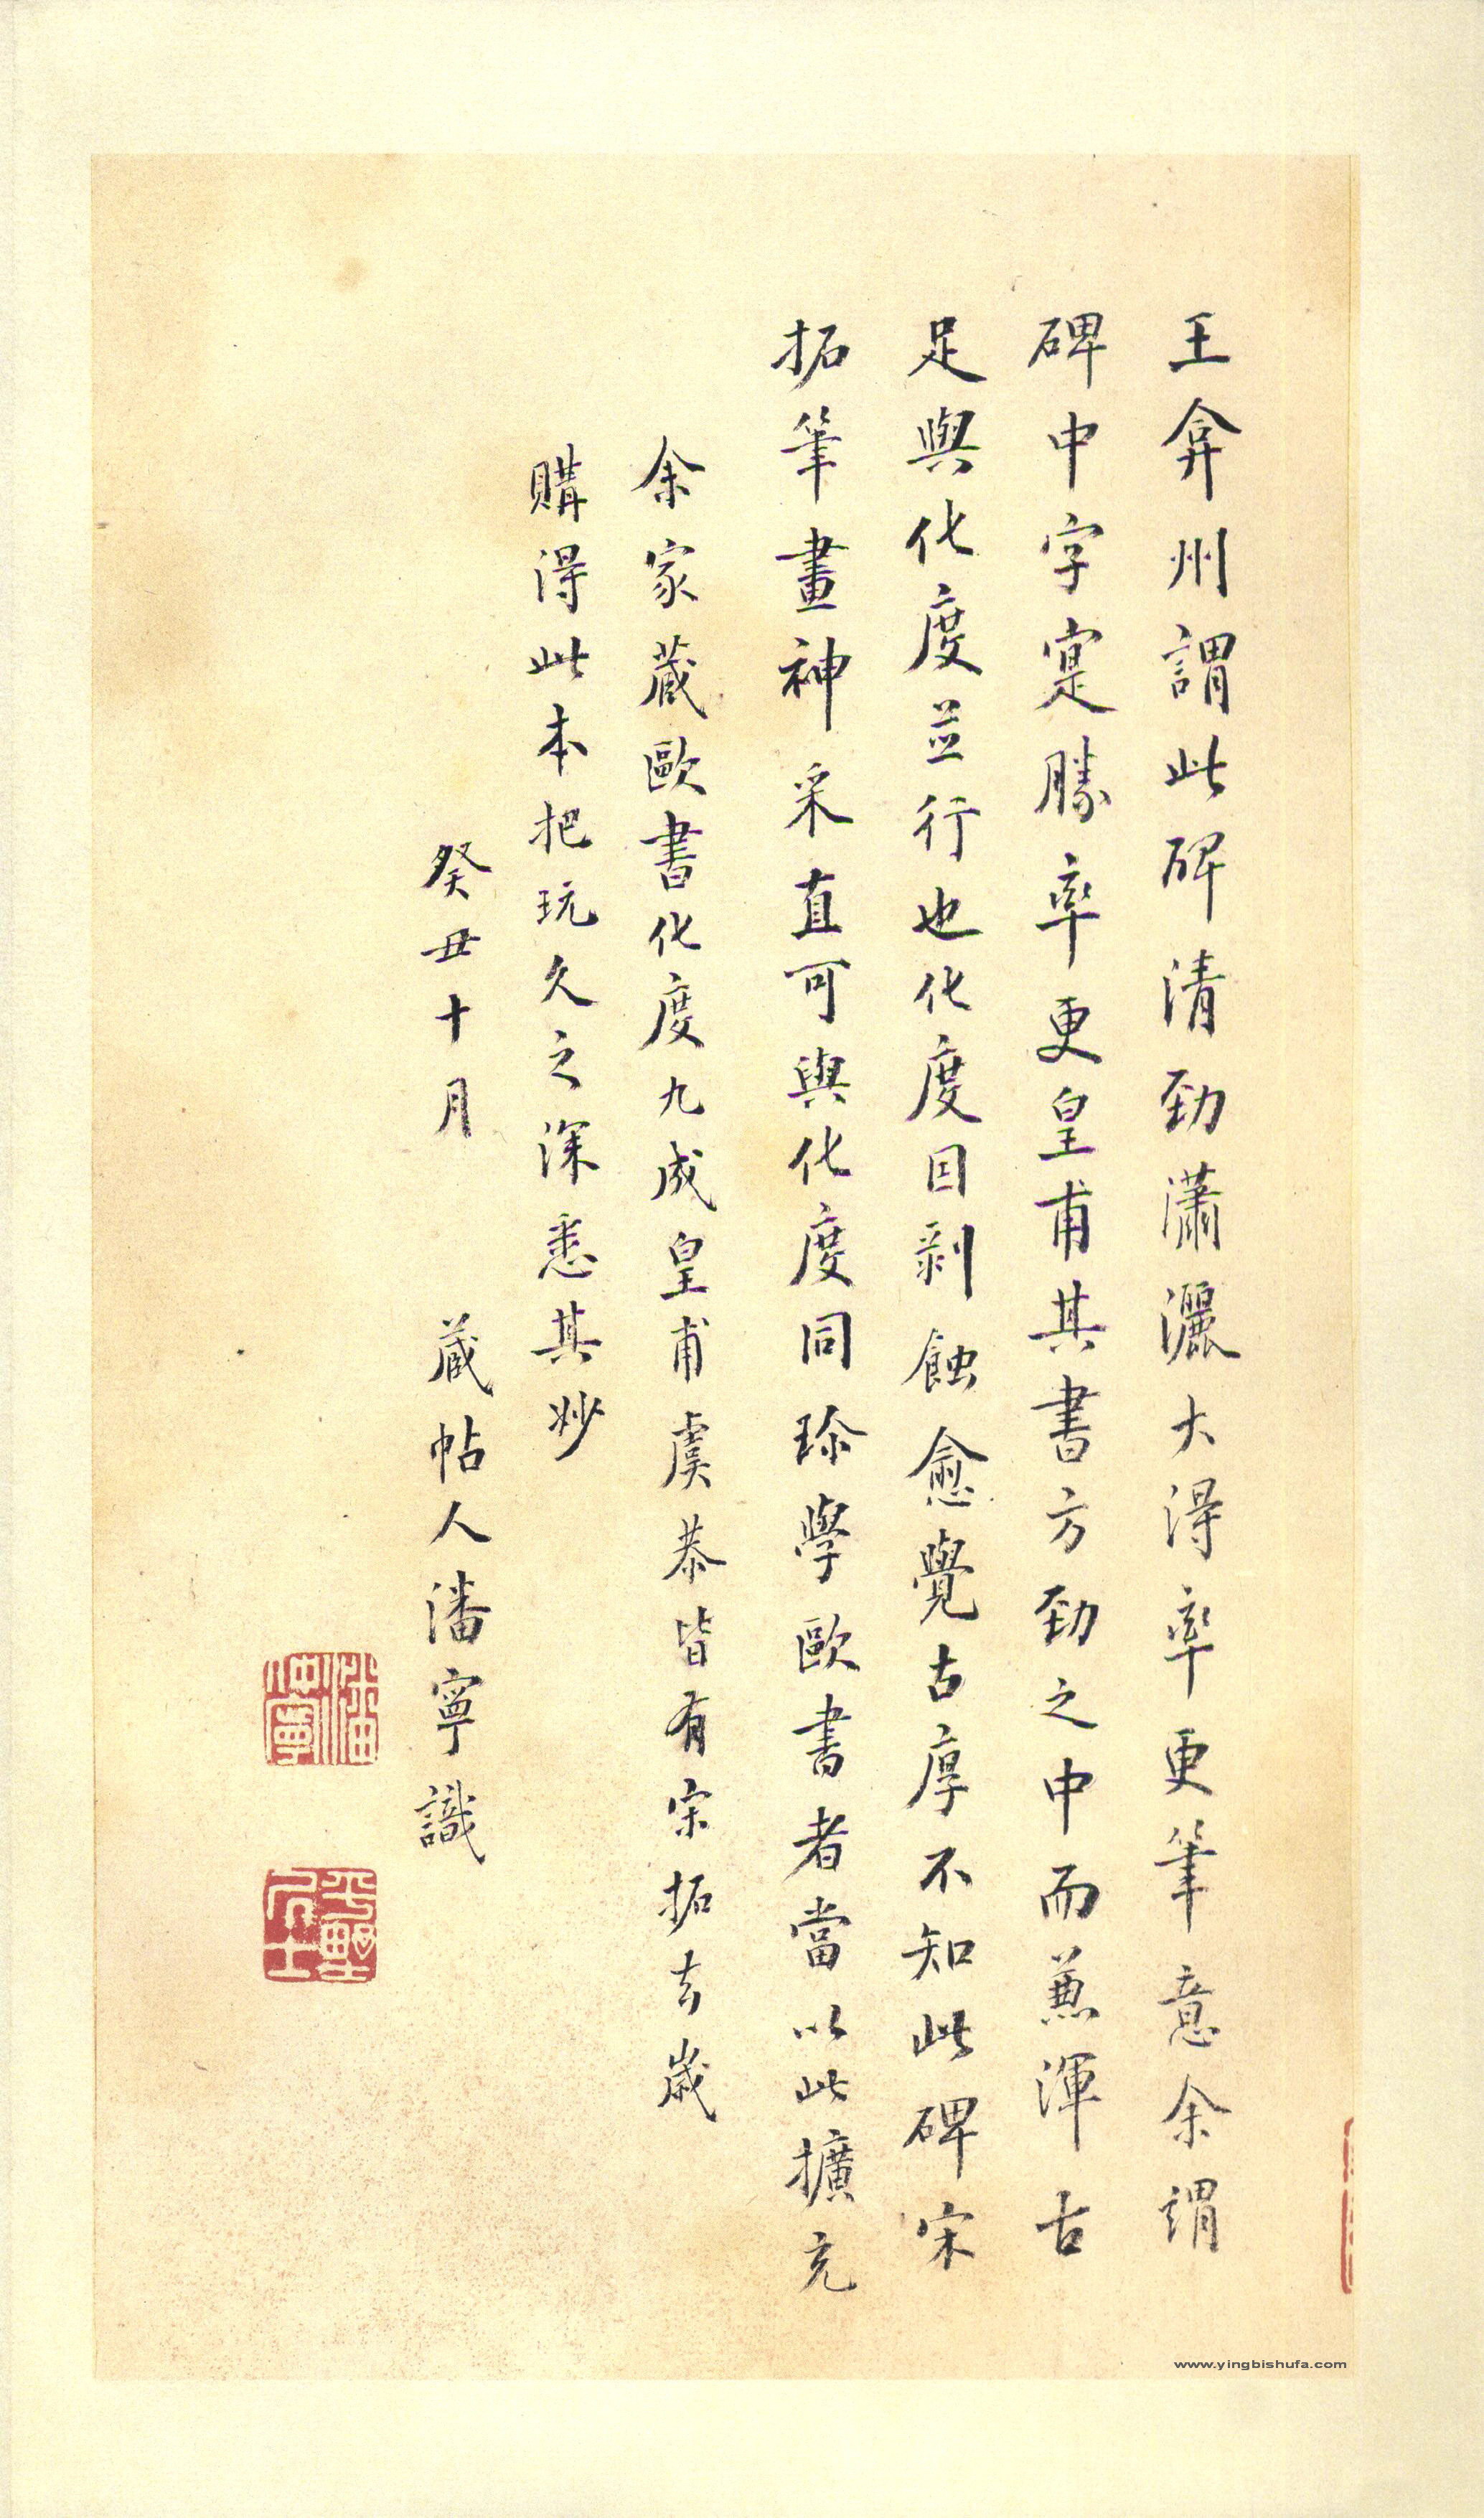 王弇州謂此碑清勁瀟灑大得率更筆意余謂
碑中字寔勝率更皇甫其書方勁之中而兼渾古
足與化度並行也化度因剥蝕愈覺古厚不知此碑宋
拓筆畫神采直可與化度同珍學歐書者當以此擴充
余家藏歐書化度九成皇甫虞恭皆有宋拓去歲
購得此本把玩久之深悉其妙
癸丑十月 藏帖人潘寧識
潘寧
平野居士
www.yingbishufa.com